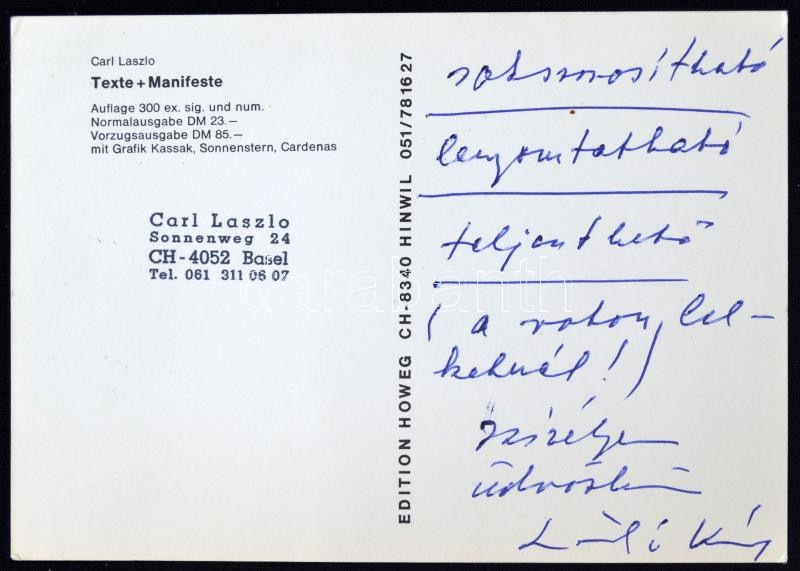 Carl Laszlo
Texte + Manifeste
Auflage 300 ex. sig. und num.
Normalausgabe DM 23.—
Vorzugsausgabe DM 85.—
mit Grafik Kassak, Sonnenstern, Cardenas
Carl Laszlo
Sonnenweg 24
CH-4052 Basel
Tel. 061 311 06 07
EDITION HOWEG CH-8340 HINWIL 051/78 16 27
sokszorosítható
lenyomtatható
terjeszthető
( a rokon lel-
keknél! )
szívélyesen
üdvözlöm
László Károly
darabanth